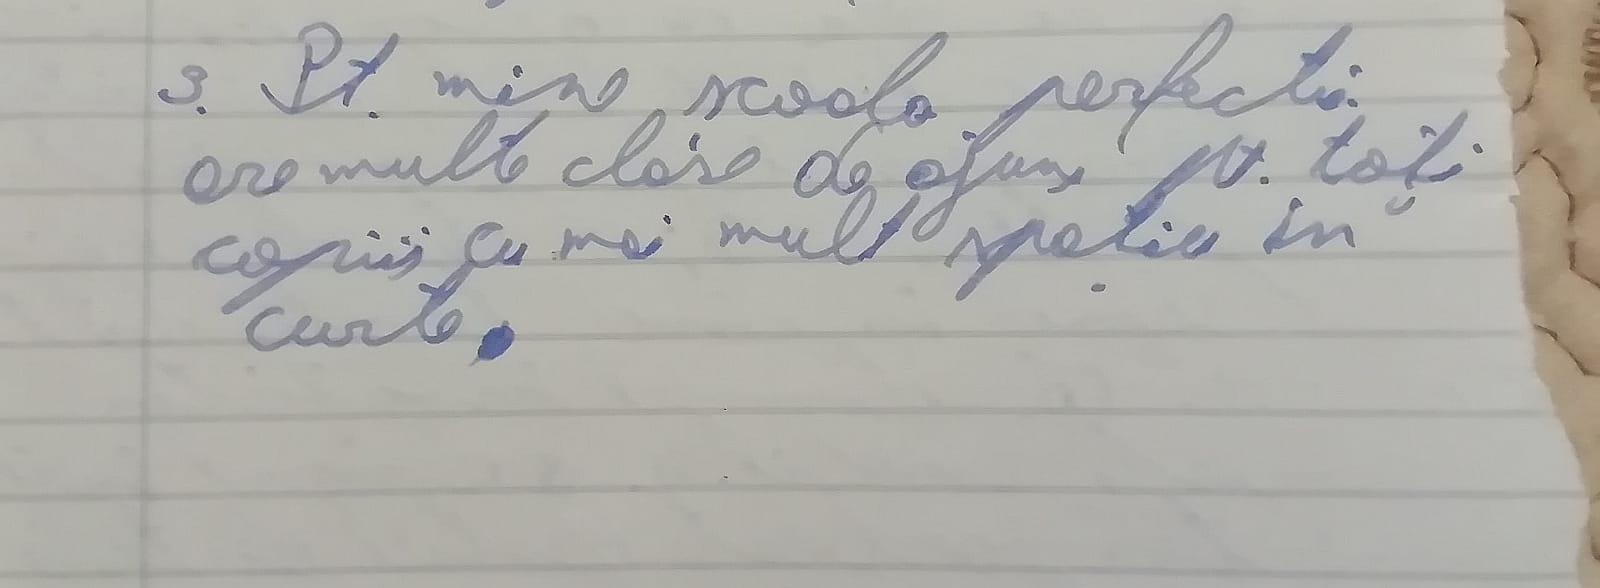 3. Pt. mine scoala perfectă
are multe clase de ajuns pt. toți
copiii cu mai mult spațiu in
curte.